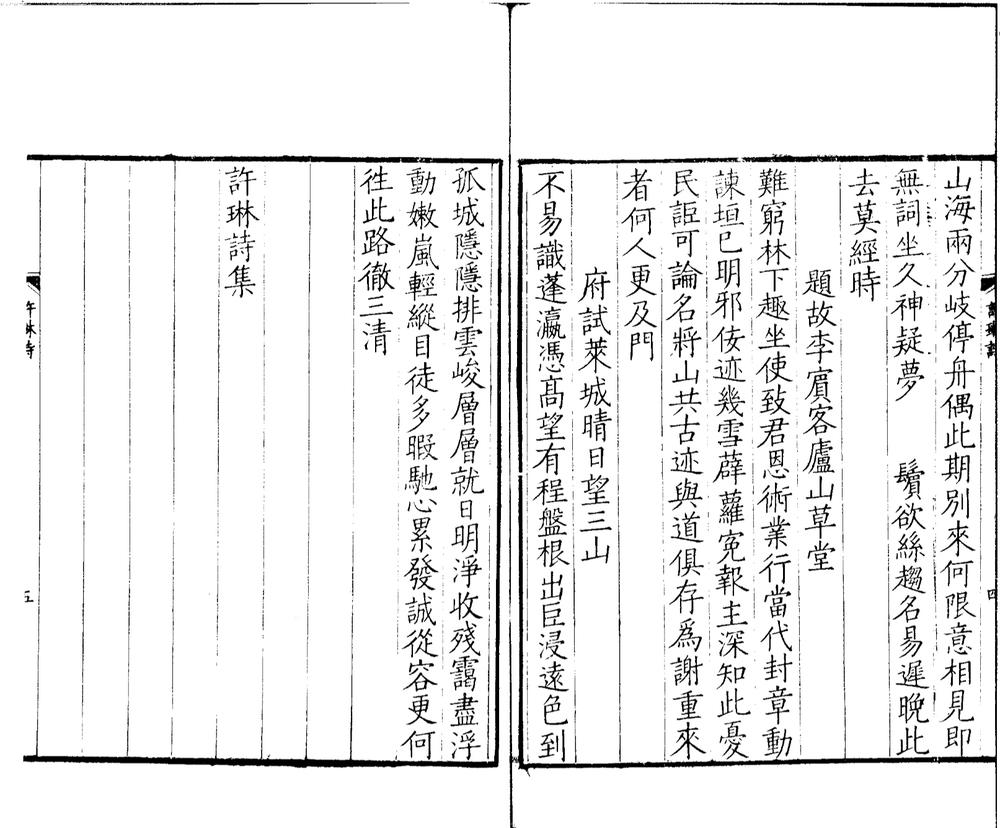 山海兩分岐停舟偶此期別來何限意相見即
無詞坐久神疑夢　　鬢欲絲趨名易遲晚此
去莫經時
題故李賔客廬山草堂
難窮林下趣坐使致君恩術業行當代封章動
諫垣已明邪侫迹幾雪薜蘿寃報主深知此憂
民詎可論名將山共古迹與道俱存爲謝重來
者何人更及門
府試萊城晴日望三山
不易識蓬瀛憑髙望有程盤根出巨浸遠色到
孤城隱隱排雲峻層層就日明淨收殘靄盡浮
動嫩嵐輕縱目徒多暇馳心累發誠從容更何
徃此路徹三清
許琳詩集
許琳詩
四
許琳詩
五